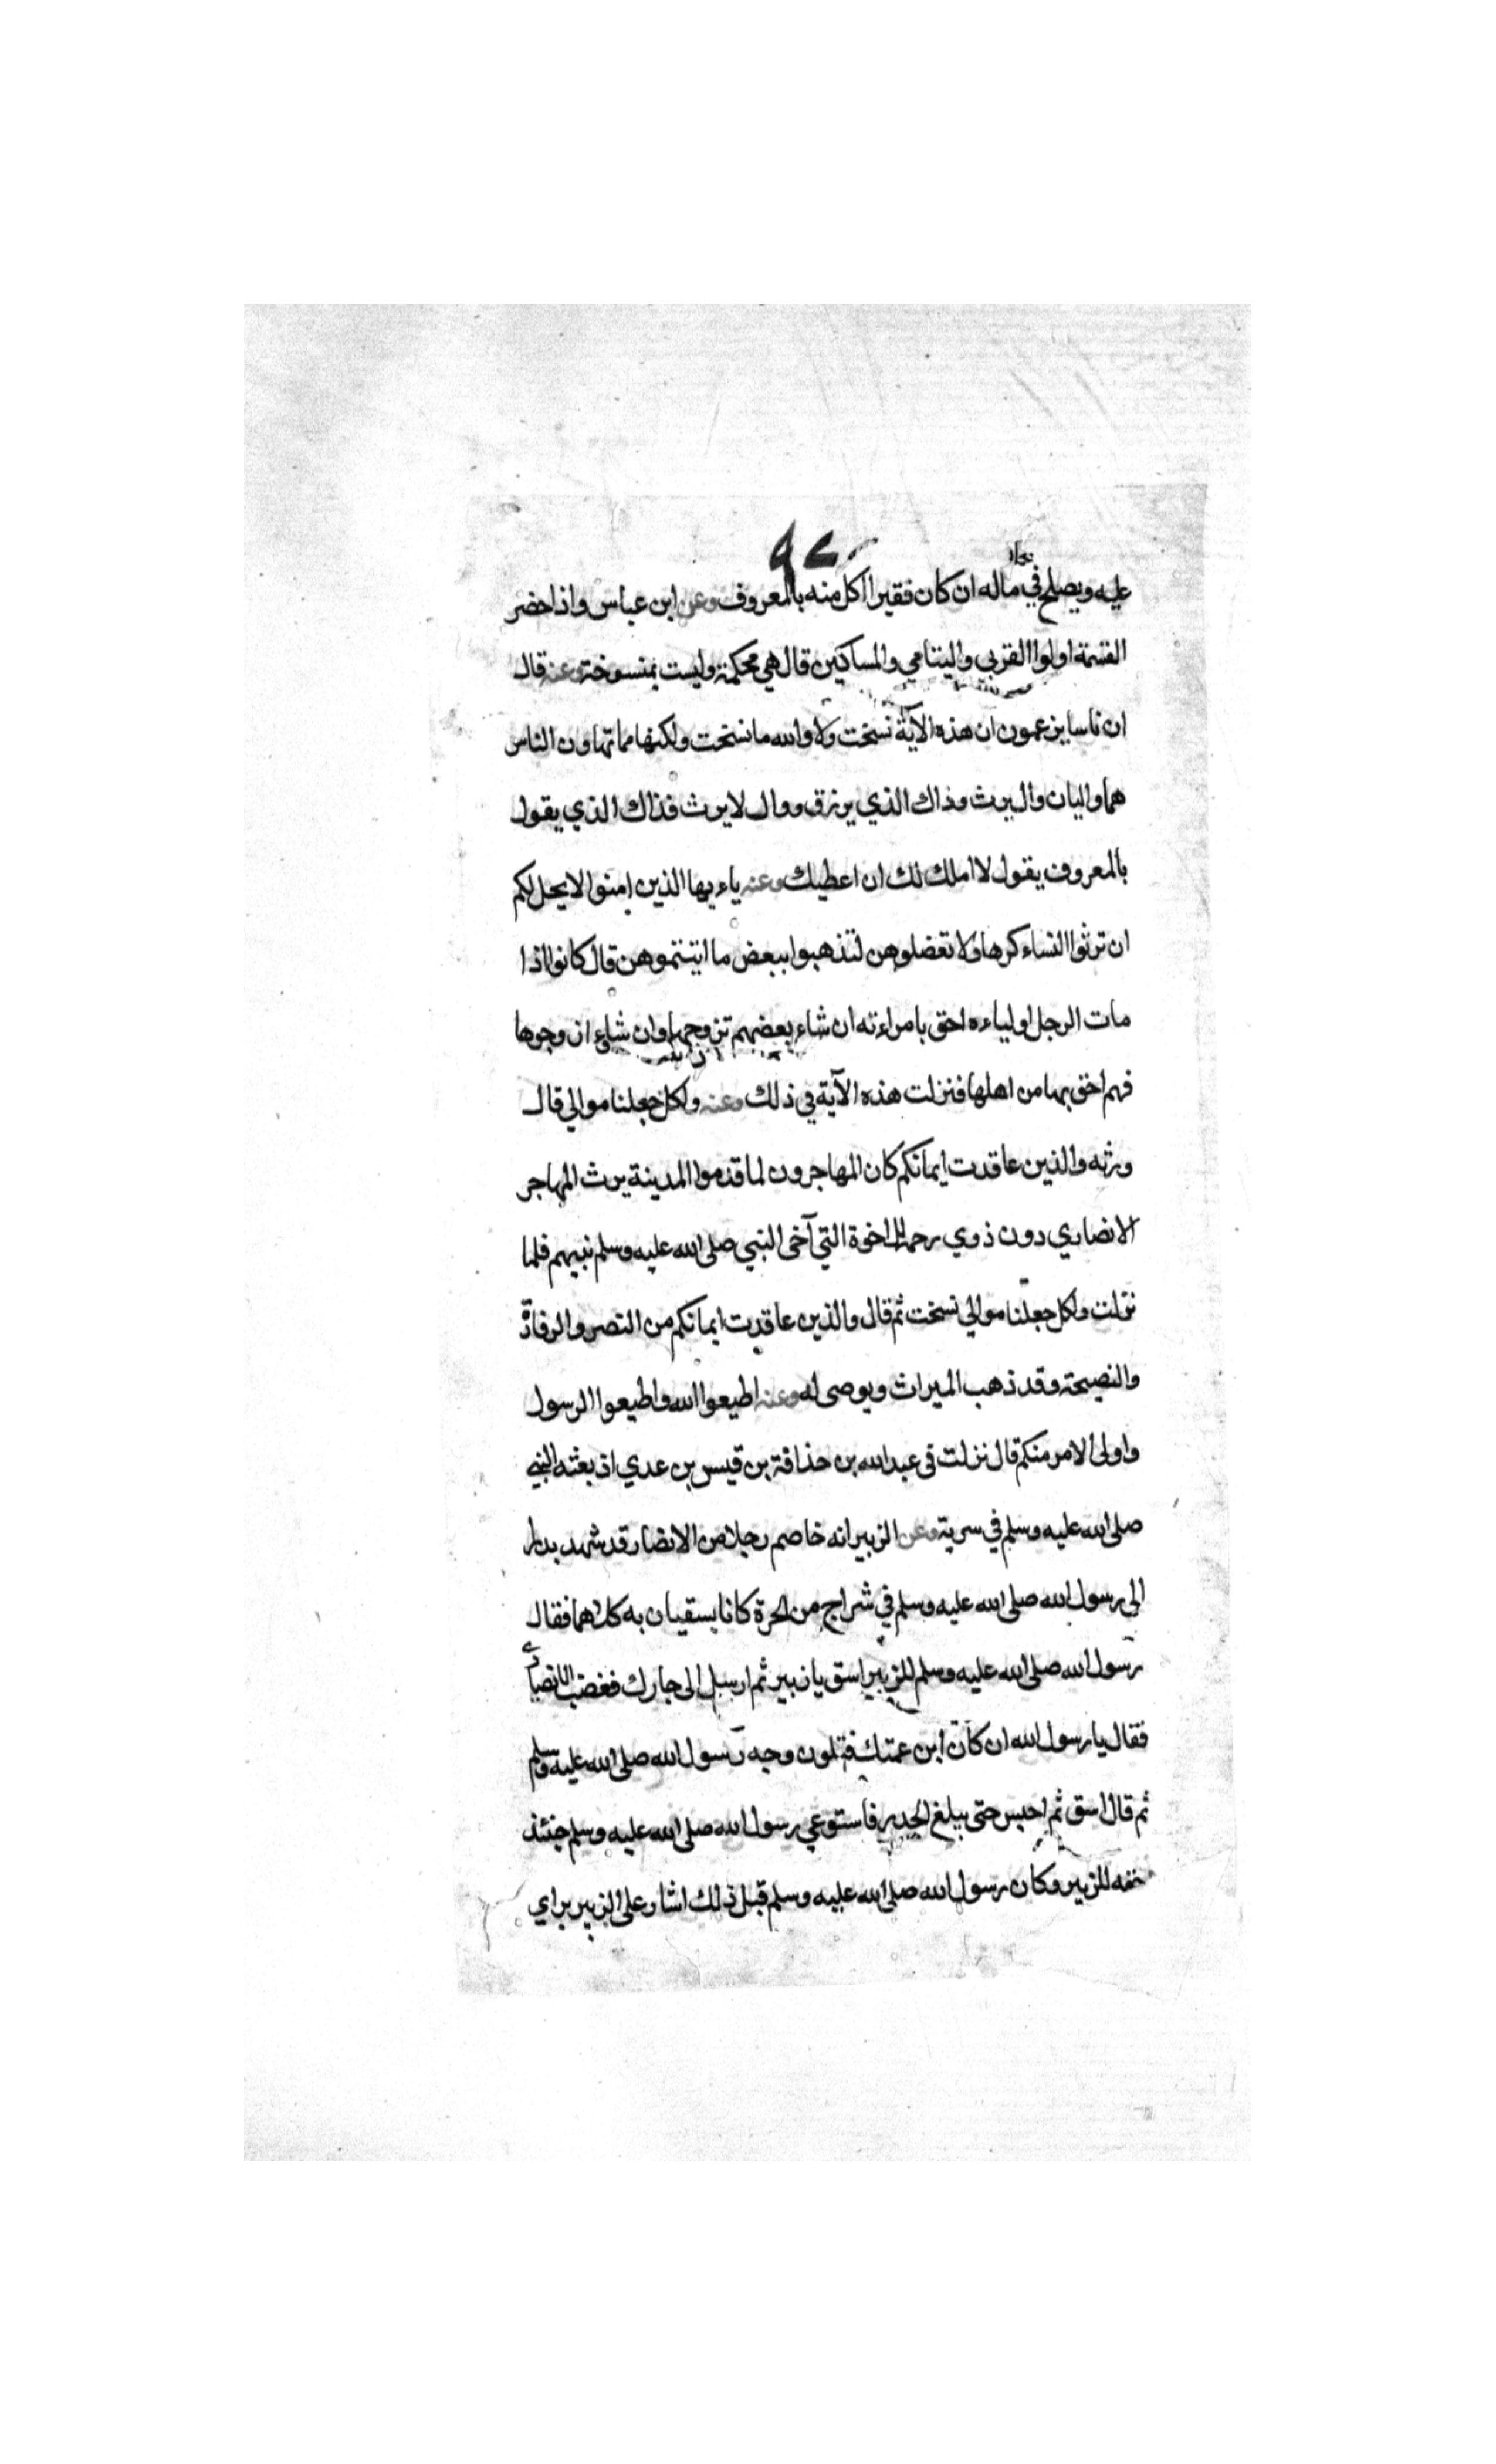 عليه ويصلح في ماله ان كان فقيرا اكل منه بالمعروف وعن ابن عباس واذا حضر
القسمة اولوا القربي واليتامي والمساكين قال هي محكمة وليست بمنسوخة وعنه قال
ان ناسا يزعمون ان هذه الآية نسخت ولا والله ما نسخت ولكنها مما تهاون الناس
هما واليان وال يرث وذاك الذي يرزق ووال لا يرث فذاك الذي يقول
بالمعروف يقول لا املك لك ان اعطيك وعنه ياءيها الذين امنوا لا يحل لكم
ان ترثوا النساء كرها ولا تعضلوهن لتذهبوا ببعض ما اتيتموهن قال كانوا اذا
مات الرجل اولياءه احق بامراءته ان شاء بعضهم تزوجها وان شاؤا زوجوها
فهم احق بها من اهلها فنزلت هذه الآية في ذلك وعنه ولكل جعلنا موالي قال
ورثه والذين عاقدت ايمانكم كان المهاجرون لما قدموا المدينة يرث المهاجر
الانصاري دون ذوي رحمه للاخوة التي آخى النبي صلى الله عليه وسلم بينهم فلما
نزلت ولكل جعلنا موالي نسخت ثم قال والذين عاقدت ايمانكم من النصر والرفادة
والنصيحة وقد ذهب الميراث ويوصى له وعنه اطيعوا الله واطيعوا الرسول
واولى الامر منكم قال نزلت في عبد الله بن حذافة بن قيس بن عدي اذ بعثه النبي
صلى الله عليه وسلم في سرية وعن الزبير انه خاصم رجلا من الانصار قد شهد بدرا
الى رسول الله صلى الله عليه وسلم في شراج من الحرة كانا يسقيان به كلاهما فقال
رسول الله صلى الله عليه وسلم للزبير اسق يا زبير ثم ارسل الى جارك فغضب الانصاري
فقال يا رسول الله ان كان ابن عمتك فتلون وجه رسول الله صلى الله عليه وسلم
ثم قال اسق ثم احبس حتى يبلغ الجدر فاستوعي رسول الله صلى الله عليه وسلم حينئذ
حقه للزبير وكان رسول الله صلى الله عليه وسلم قبل ذلك اشار على الزبير براي